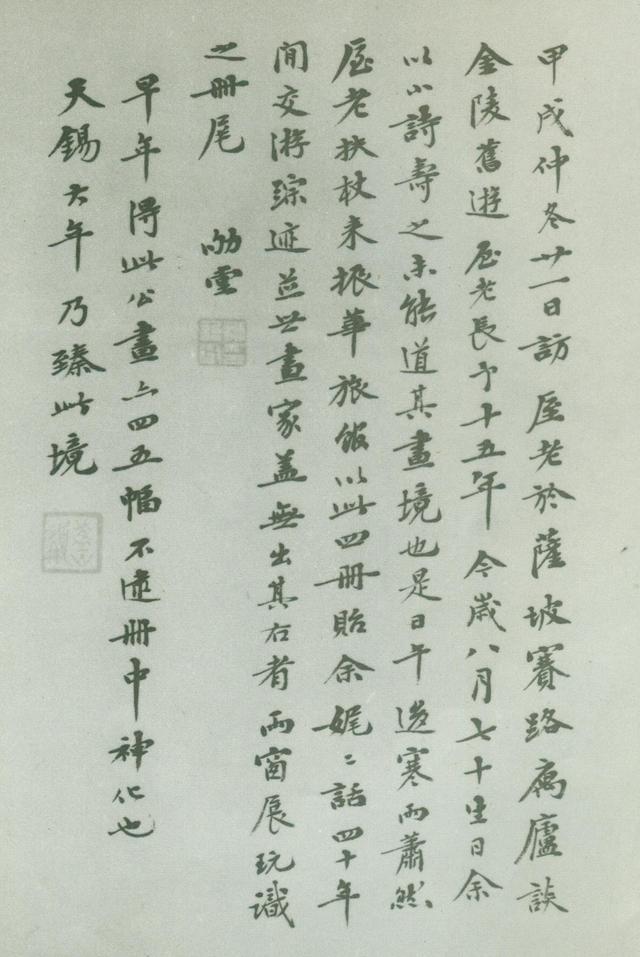 甲戌仲冬廿一日訪 厔老於薩坡賽路寓廬談
金陵舊遊 厔老長予十五年 今歲八月七十生日余
以小詩壽之未能道其畫境也是日午後寒雨蕭然
厔老扶杖来振華旅館以此四冊貽余娓〻話四十年
間交游踪迹並世畫家蓋無出其右者 雨窗展玩識
之冊尾
早年得此公畫亦四五幅不逮冊中神化也
天錫六年乃臻此境